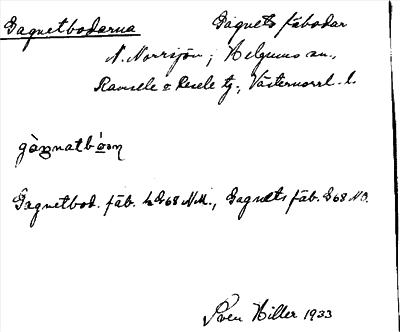 Gagnetbodarna Gagnets fäbodar
N. Norrsjön, Helgums sn.,
Ramsele o Resele tg., Västernorrl. l.
Gagnetbod. fäb. G68 NV., Gagnets fäb. G68 NO.
Sven Hiller 1933